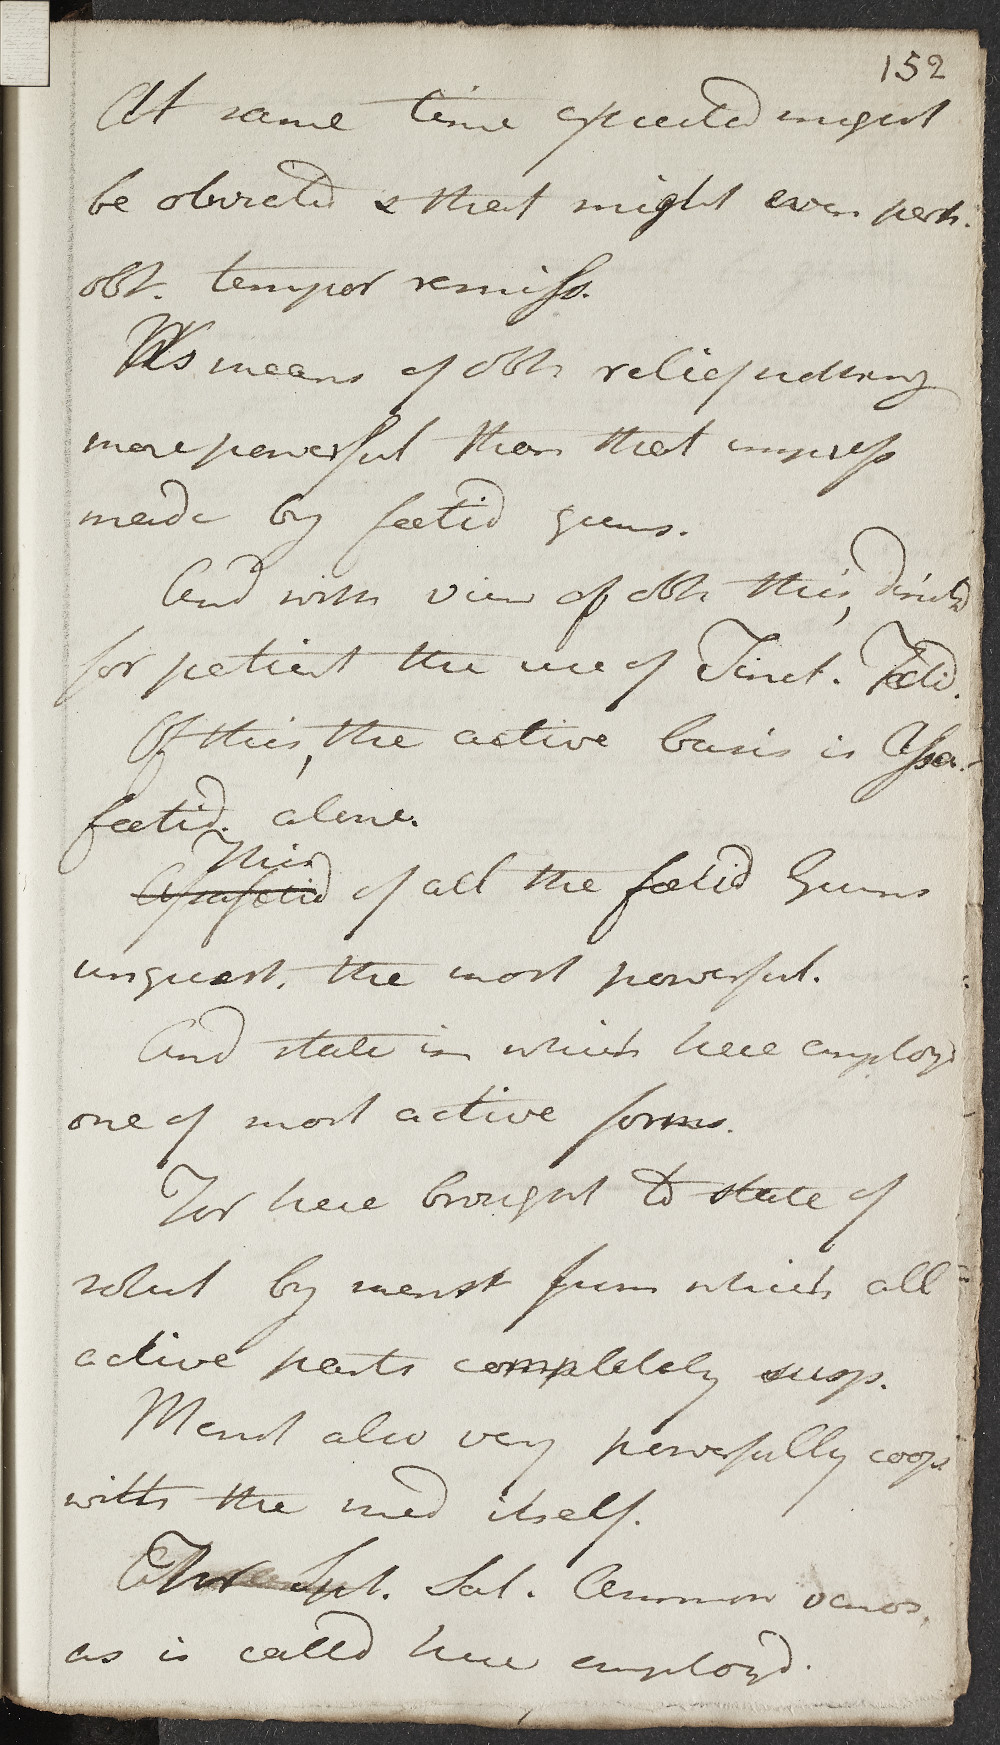 152
At same time expected might
be obviated & that might even perh.
obt. tempor remiss.
No means of obtn relief udturng
more powerful than that impress
made by foetid gums.
And with view of obtn this, directd
for patient the use of Tinct. Foetid.
Of this, the active basis is Assa-
foetid. alone.
This
Assafoetid of all the foetid Gums
unquest. the most powerful.
And state in which here employd
one of most active forms.
For here brought to state of
solut by menst from which all
active parts completely susp.
Menst also very powerfully coops
with the med itself.
For Spt. Sal. Ammon vinos.
as is called here employd.